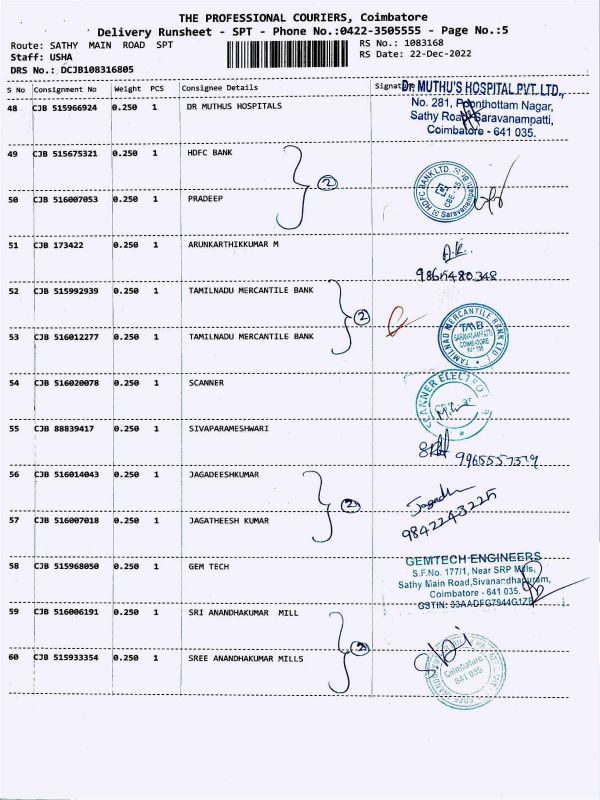 THE PROFESSIONAL COURIERS, Coimbatore
Delivery Runsheet - SPT - Phone No.:0422-3505555 - Page No.:5
Route: SATHY MAIN ROAD SPT
RS No.: 1083168
Staff: USHA
RS Date: 22-Dec-2022
DRS No.: DCJB108316805
S No Consignment No Weight PCS Consignee Details Signature
48 CJB 515966924 0.250 1 DR MUTHUS HOSPITALS
Dr. MUTHU'S HOSPITAL PVT. LTD.,
No. 281, Poonthottam Nagar,
Sathy Road, Saravanampatti,
Coimbatore - 641 035.
49 CJB 515675321 0.250 1 HDFC BANK
2
HDFC BANK LTD.
CBE - 35
50 CJB 516007053 0.250 1 PRADEEP
51 CJB 173422 0.250 1 ARUNKARTHIKKUMAR M
A.K.
52 CJB 515992939 0.250 1 TAMILNADU MERCANTILE BANK
2
TAMILNAD MERCANTILE BANK LTD
TMB
COIMBATORE
53 CJB 516012277 0.250 1 TAMILNADU MERCANTILE BANK
54 CJB 516020078 0.250 1 SCANNER
SCANNER ELECTRO
55 CJB 88839417 0.250 1 SIVAPARAMESHWARI
56 CJB 516014043 0.250 1 JAGADEESHKUMAR
2
9842243225
57 CJB 516007018 0.250 1 JAGATHEESH KUMAR
58 CJB 515968050 0.250 1 GEM TECH
GEMTECH ENGINEERS
S.F.No. 177/1, Near SRP Mills,
Sathy Main Road,Sivanandhapuram,
Coimbatore - 641 035.
GSTIN: 33AADFG7944G1ZP
59 CJB 516006191 0.250 1 SRI ANANDHAKUMAR MILL
2
60 CJB 515933354 0.250 1 SREE ANANDHAKUMAR MILLS
Coimbatore
641 035